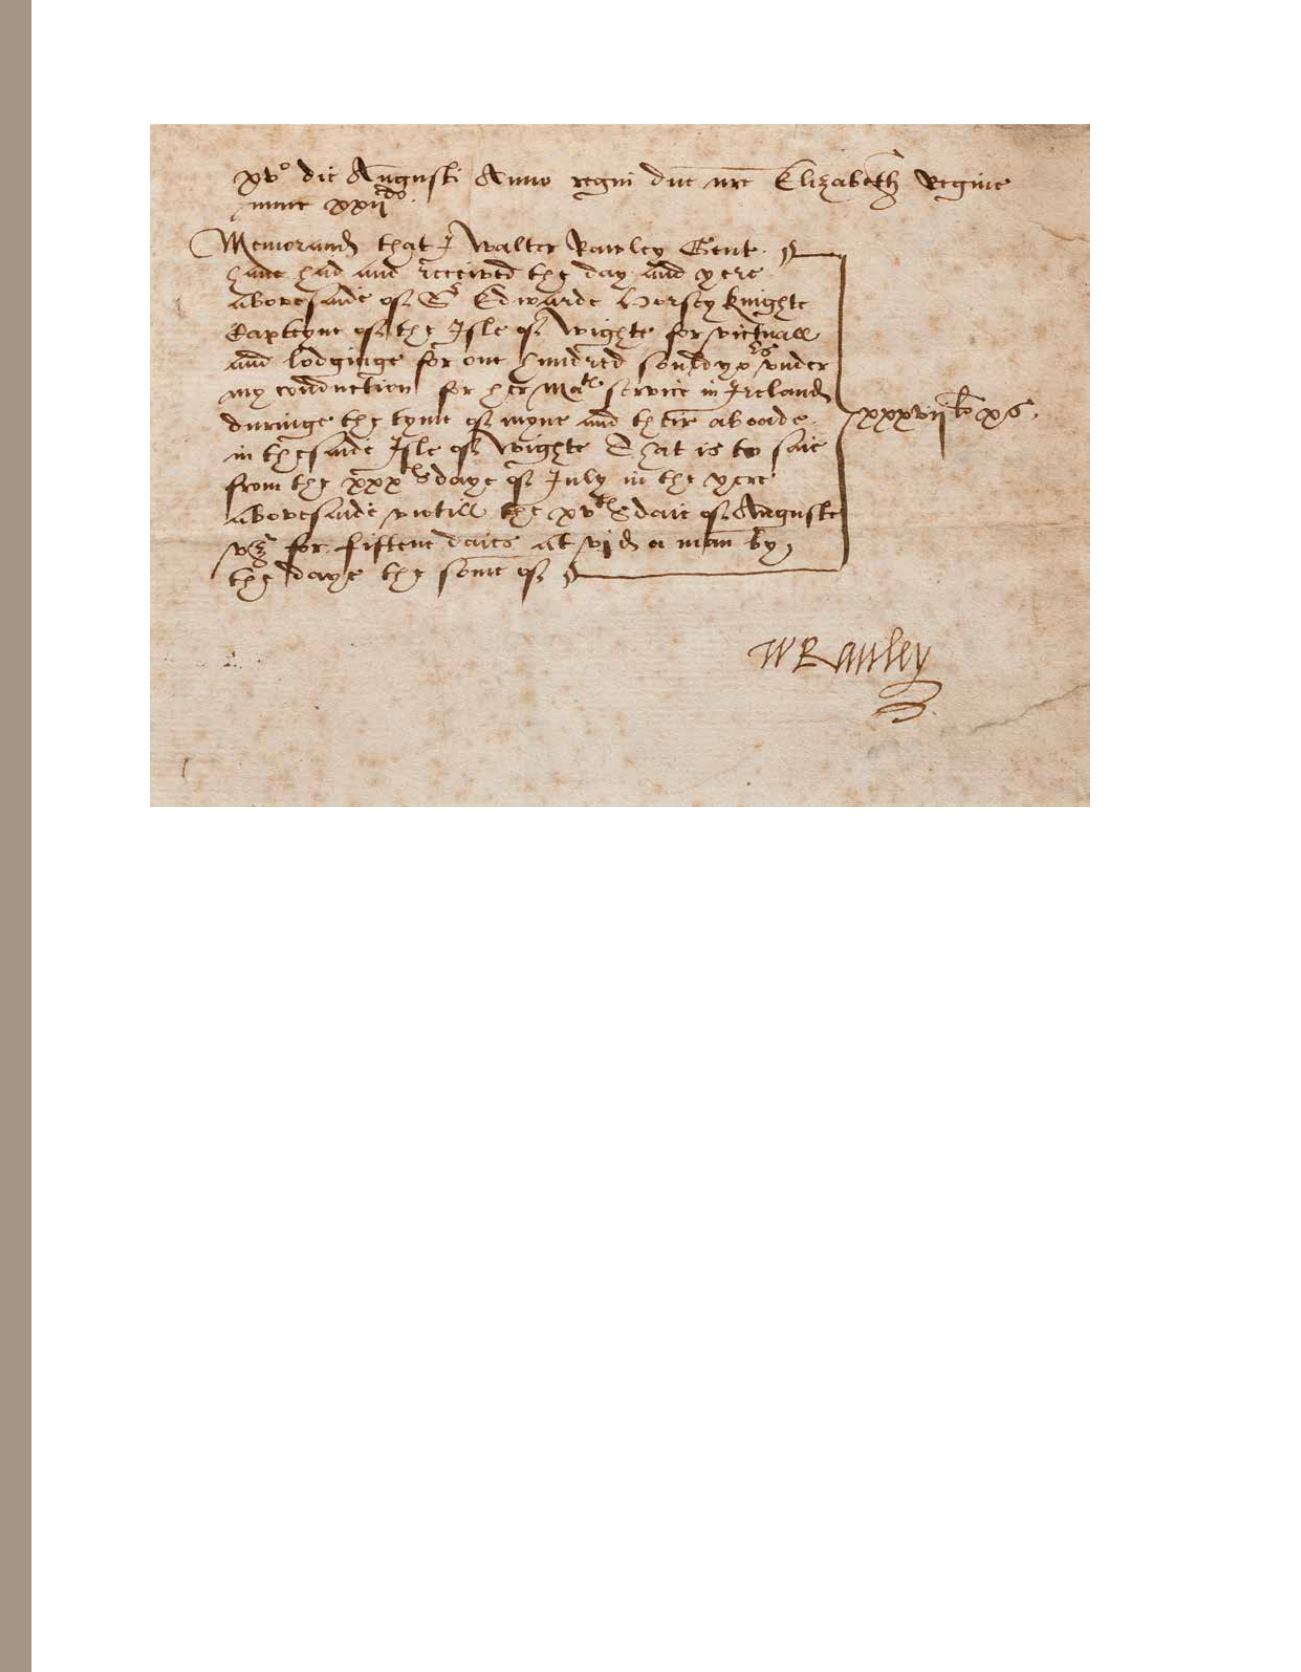 xv° die Augusti Anno regni dne nre Elizabeth Regine
nunc xxii do.
Memorand that I Walter Rawley Gent.
have had and received the day and yere
abovesaide of Sr Edwarde Horsey knighte
Capteyne of the Isle of Wighte for victuall
and lodginge for one hundred souldyors under
my conduction for her Mats service in Ireland
duringe the tyme of myne and their aboade
in thesaide Isle of Wighte That is to saie
from the xxxth daye of July in the yere
abovesaide untill the xvth daie of Auguste
vz for fiftene daies at vid a man by
the daye the some of
xxxvii li xs.
WRauley